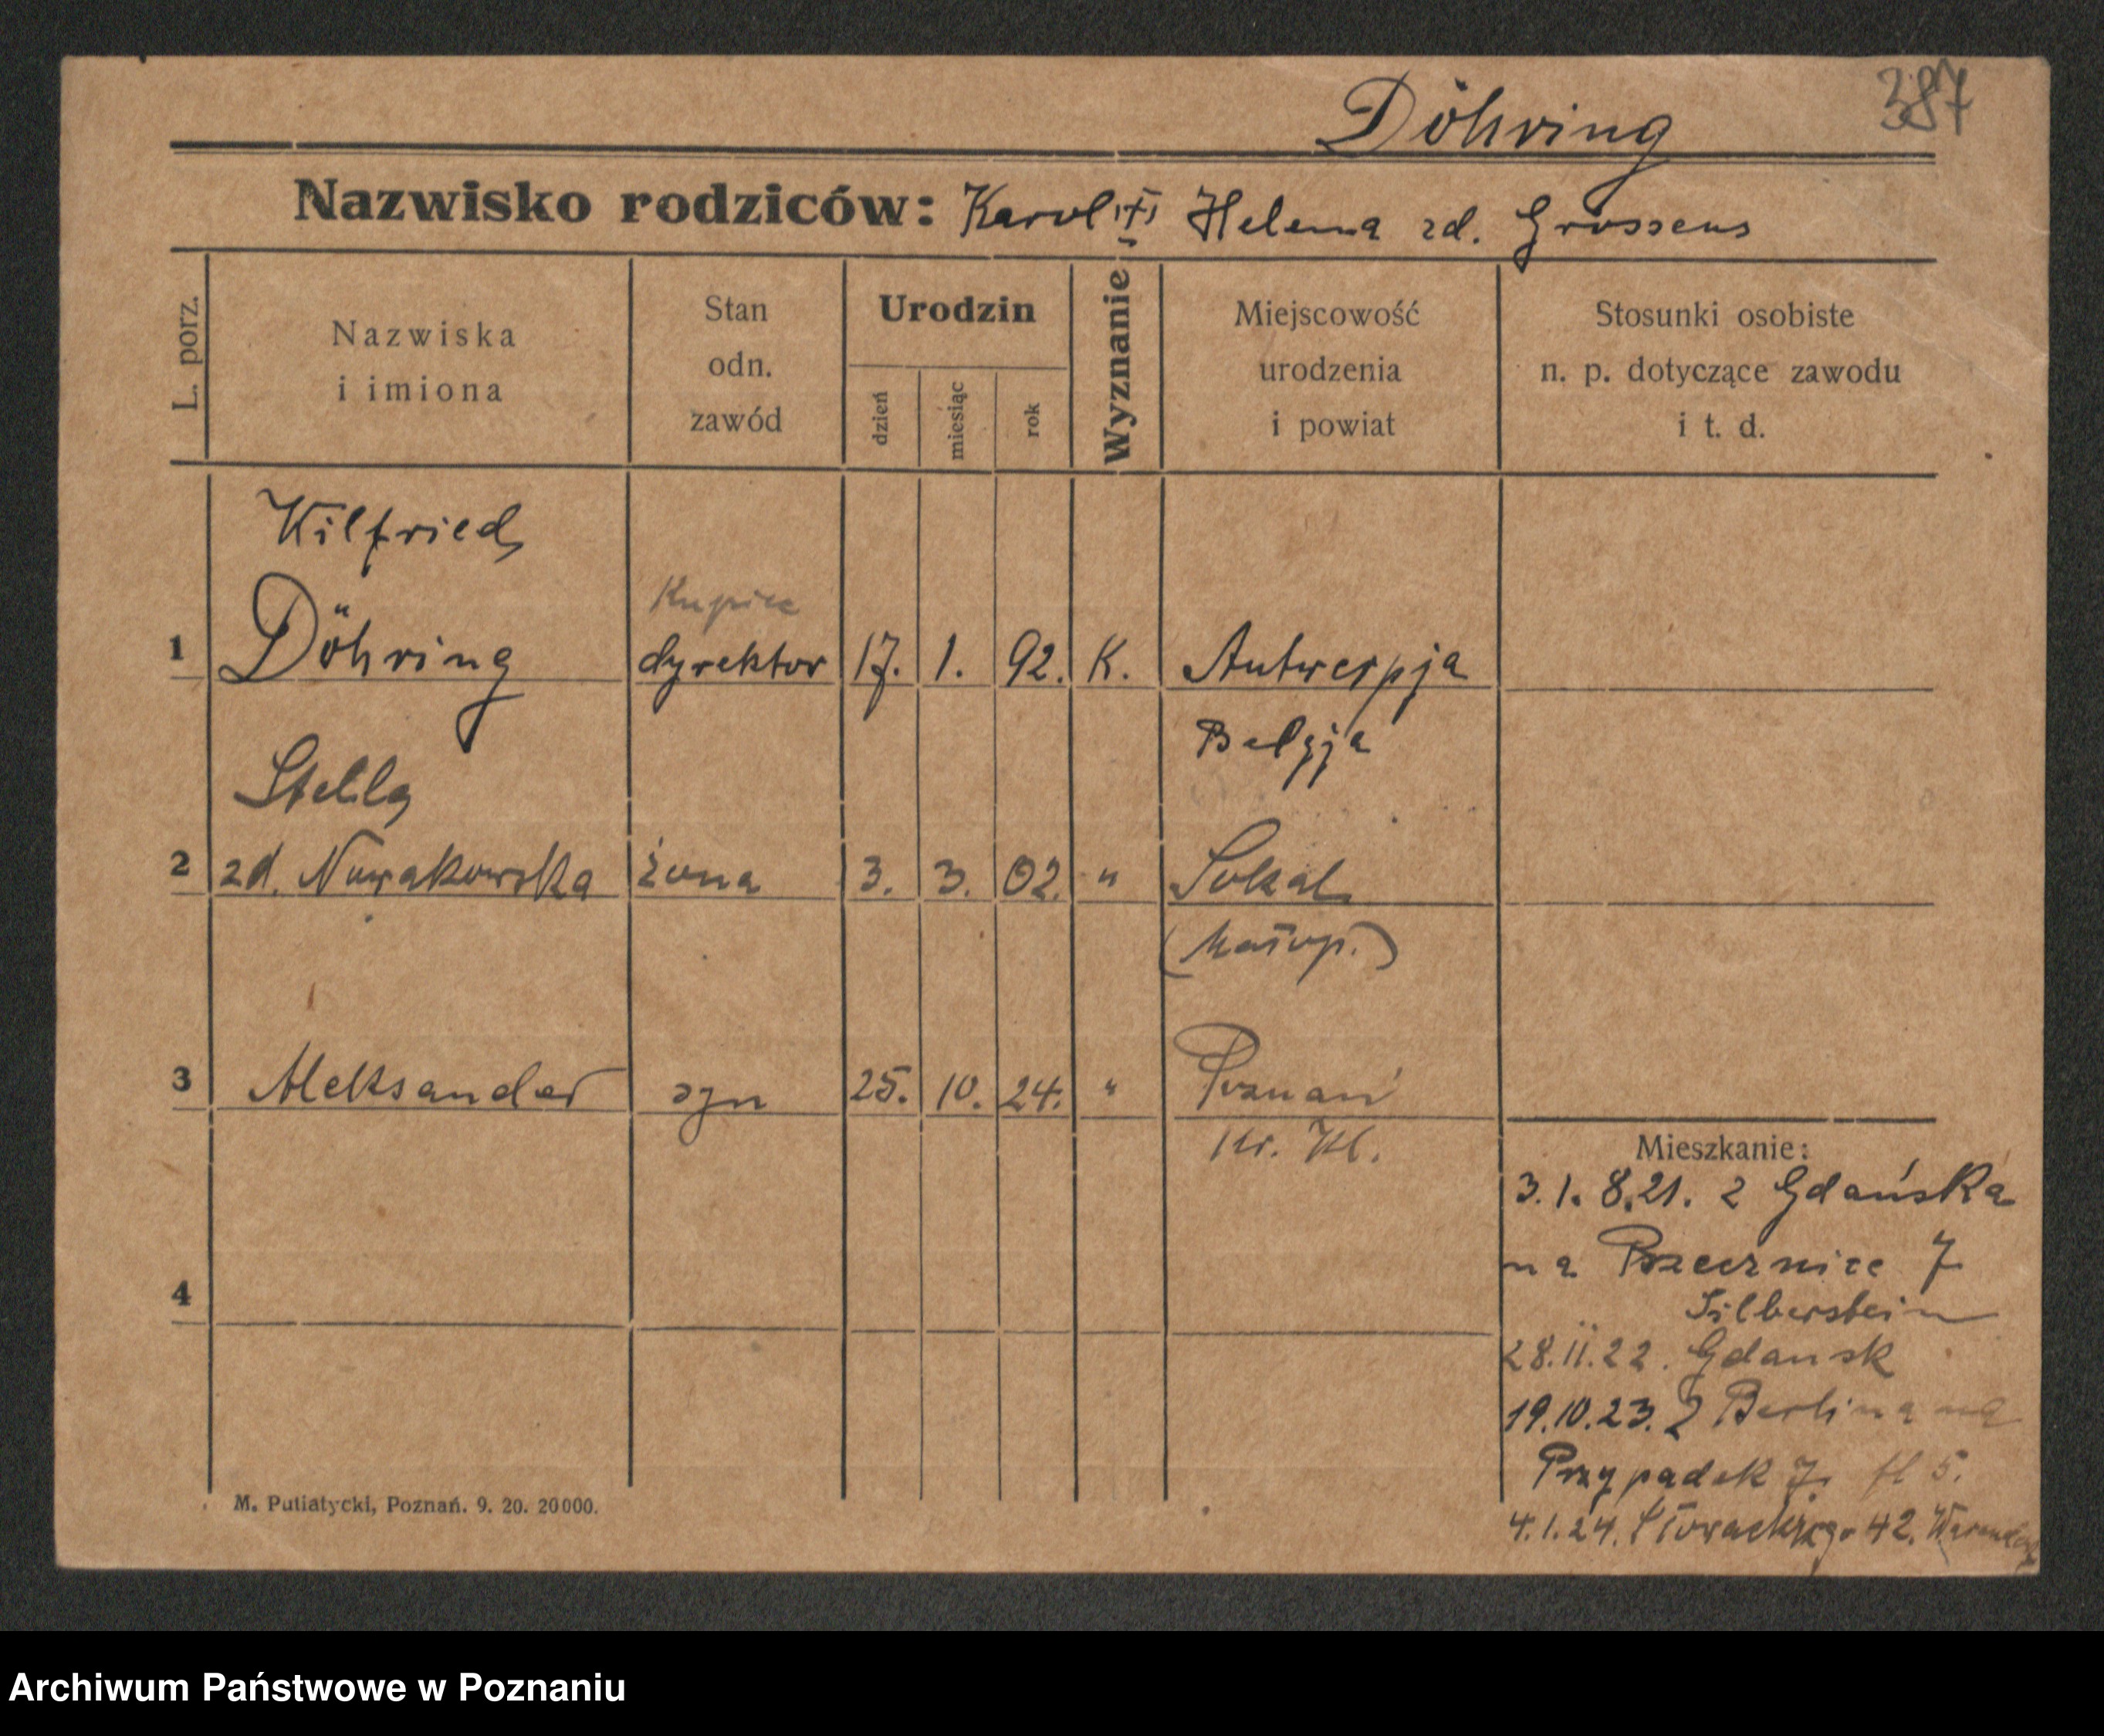 Döhring 387
Nazwisko rodziców: Karol (+) Helena zd. Grossens
L. porz.
Nazwiska
i imiona
Stan
odn.
zawód
Urodzin
dzień
miesiąc
rok
Wyznanie
Miejscowość
urodzenia
i powiat
Stosunki osobiste
n. p. dotyczące zawodu
i t. d.
Wilfried
Kupiec
1 Döhring dyrektor 17. 1. 92. K. Antwerpja
Belgja
Stella
2 zd. Nowakowska żona 3. 3. 02. " Sokal
(Małop.)
3 Aleksander syn 25. 10. 24. " Poznań
4
Mieszkanie:
3.1. 8.21. z Gdańska
na 7
Silberstein
28.11.22. Gdansk
19.10.23. z Berlina na
Przypadek 7. 5.
4.1.24. Słowackiego 42.
M. Putiatycki, Poznań. 9. 20. 20000.
Archiwum Państwowe w Poznaniu